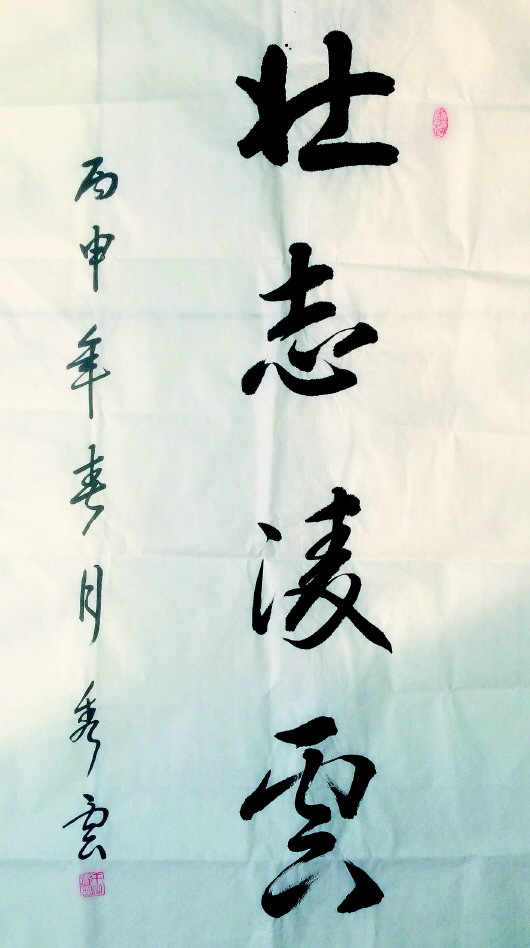 壮志凌雲
丙申年春月秀雲